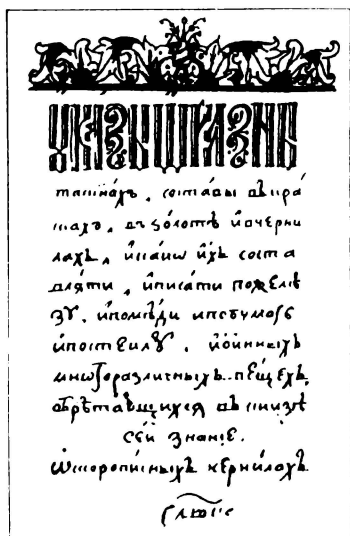 указъ ѡ разны
таинахъ, составы въ кра
скахъ, въ золотѣ и въ черни
лахъ, и какѡ ихъ соста
вляти, и писати по желѣ
зу, и по мѣди и по бумагѣ
и по стеклу, и ѡ инныхъ
многоразличныхъ вещехъ
обрѣтающихся въ книзѣ
сей знание.
ѡ скорописныхъ чернилахъ